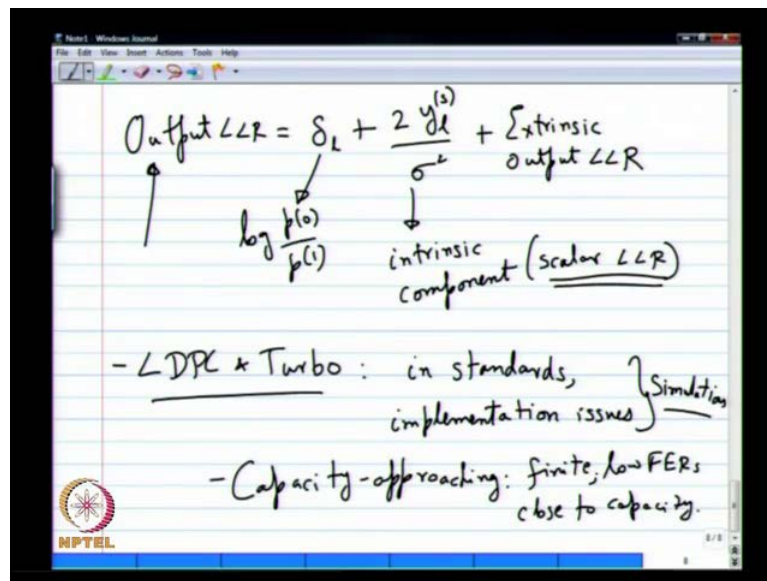 Note1 - Windows Journal
File Edit View Insert Actions Tools Help
Output LLR = δ_l + 2 y_l^(s) / σ² + Extrinsic output LLR
log p(0)/p(1)
intrinsic component (scalar LLR)
- LDPC & Turbo : in standards,
implementation issues } Simulation
- Capacity-approaching: finite, low FERs
close to capacity.
NPTEL
8/8
8